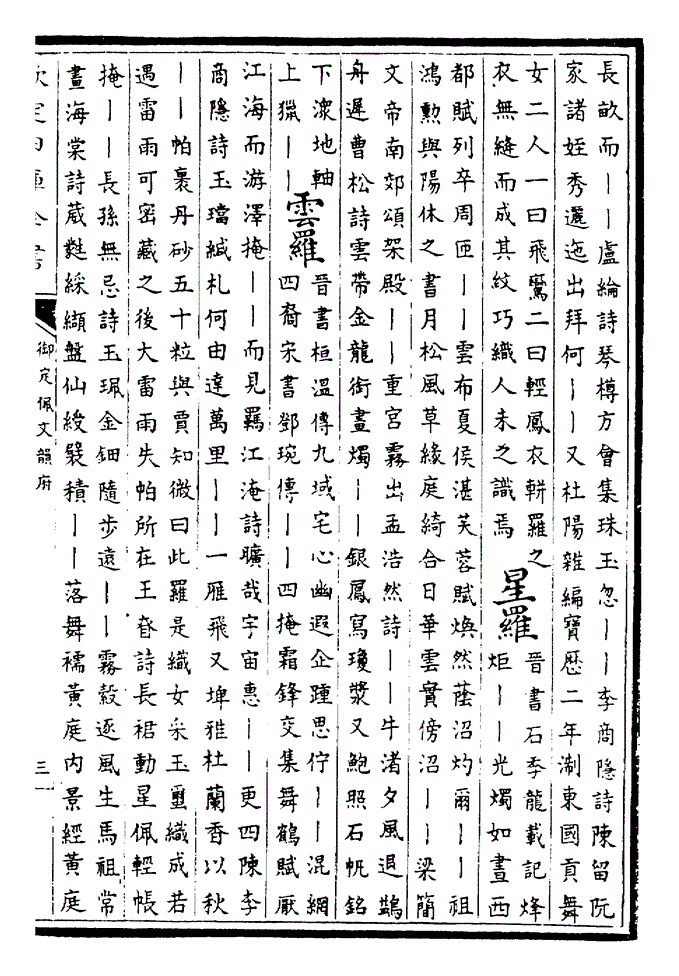 長畝而——盧綸詩琴樽方會集珠玉忽——李商隱詩陳留阮
家諸姪秀邐迤出拜何——又杜陽雜編寶歷二年淛東國貢舞
女二人一曰飛鸞二曰輕鳳衣輧羅之
衣無縫而成其紋巧織人未之識焉
星羅
晉書石季龍載記烽
炬——光燭如晝西
都賦列卒周匝——雲布夏侯湛芙蓉賦煥然蔭沼灼爾——祖
鴻勲與陽休之書月松風草緣庭綺合日華雲實傍沼——梁簡
文帝南郊頌架殿——重宮霧出孟浩然詩——牛渚夕風退鷁
舟遲曹松詩雲帶金龍銜畫燭——銀鳳寫瓊漿又鮑照石帆銘
下潨地軸
上獵——
雲羅
晉書桓溫傳九域宅心幽遐企踵思佇——混網
四裔宋書鄧琬傳——四掩霜鋒交集舞鶴賦厭
江海而游澤掩——而見羈江淹詩曠哉宇宙惠——更四陳李
商隱詩玉璫緘札何由達萬里——一雁飛又埤雅杜蘭香以秋
——帕裹丹砂五十粒與賈知微曰此羅是織女采玉璽織成若
遇雷雨可密藏之後大雷雨失帕所在王詩長裾動星佩輕帳
掩——長孫無忌詩玉珮金鈿隨步遠——霧縠逐風生馬祖常
畫海棠詩葳麩綵纈盤仙綬襞積——落舞襦黃庭內景經黃庭
欽定四庫全書
御定佩文韻府
三